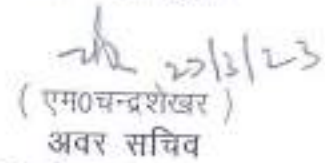 27/3/23
( एम0चन्द्रशेखर )
अवर सचिव